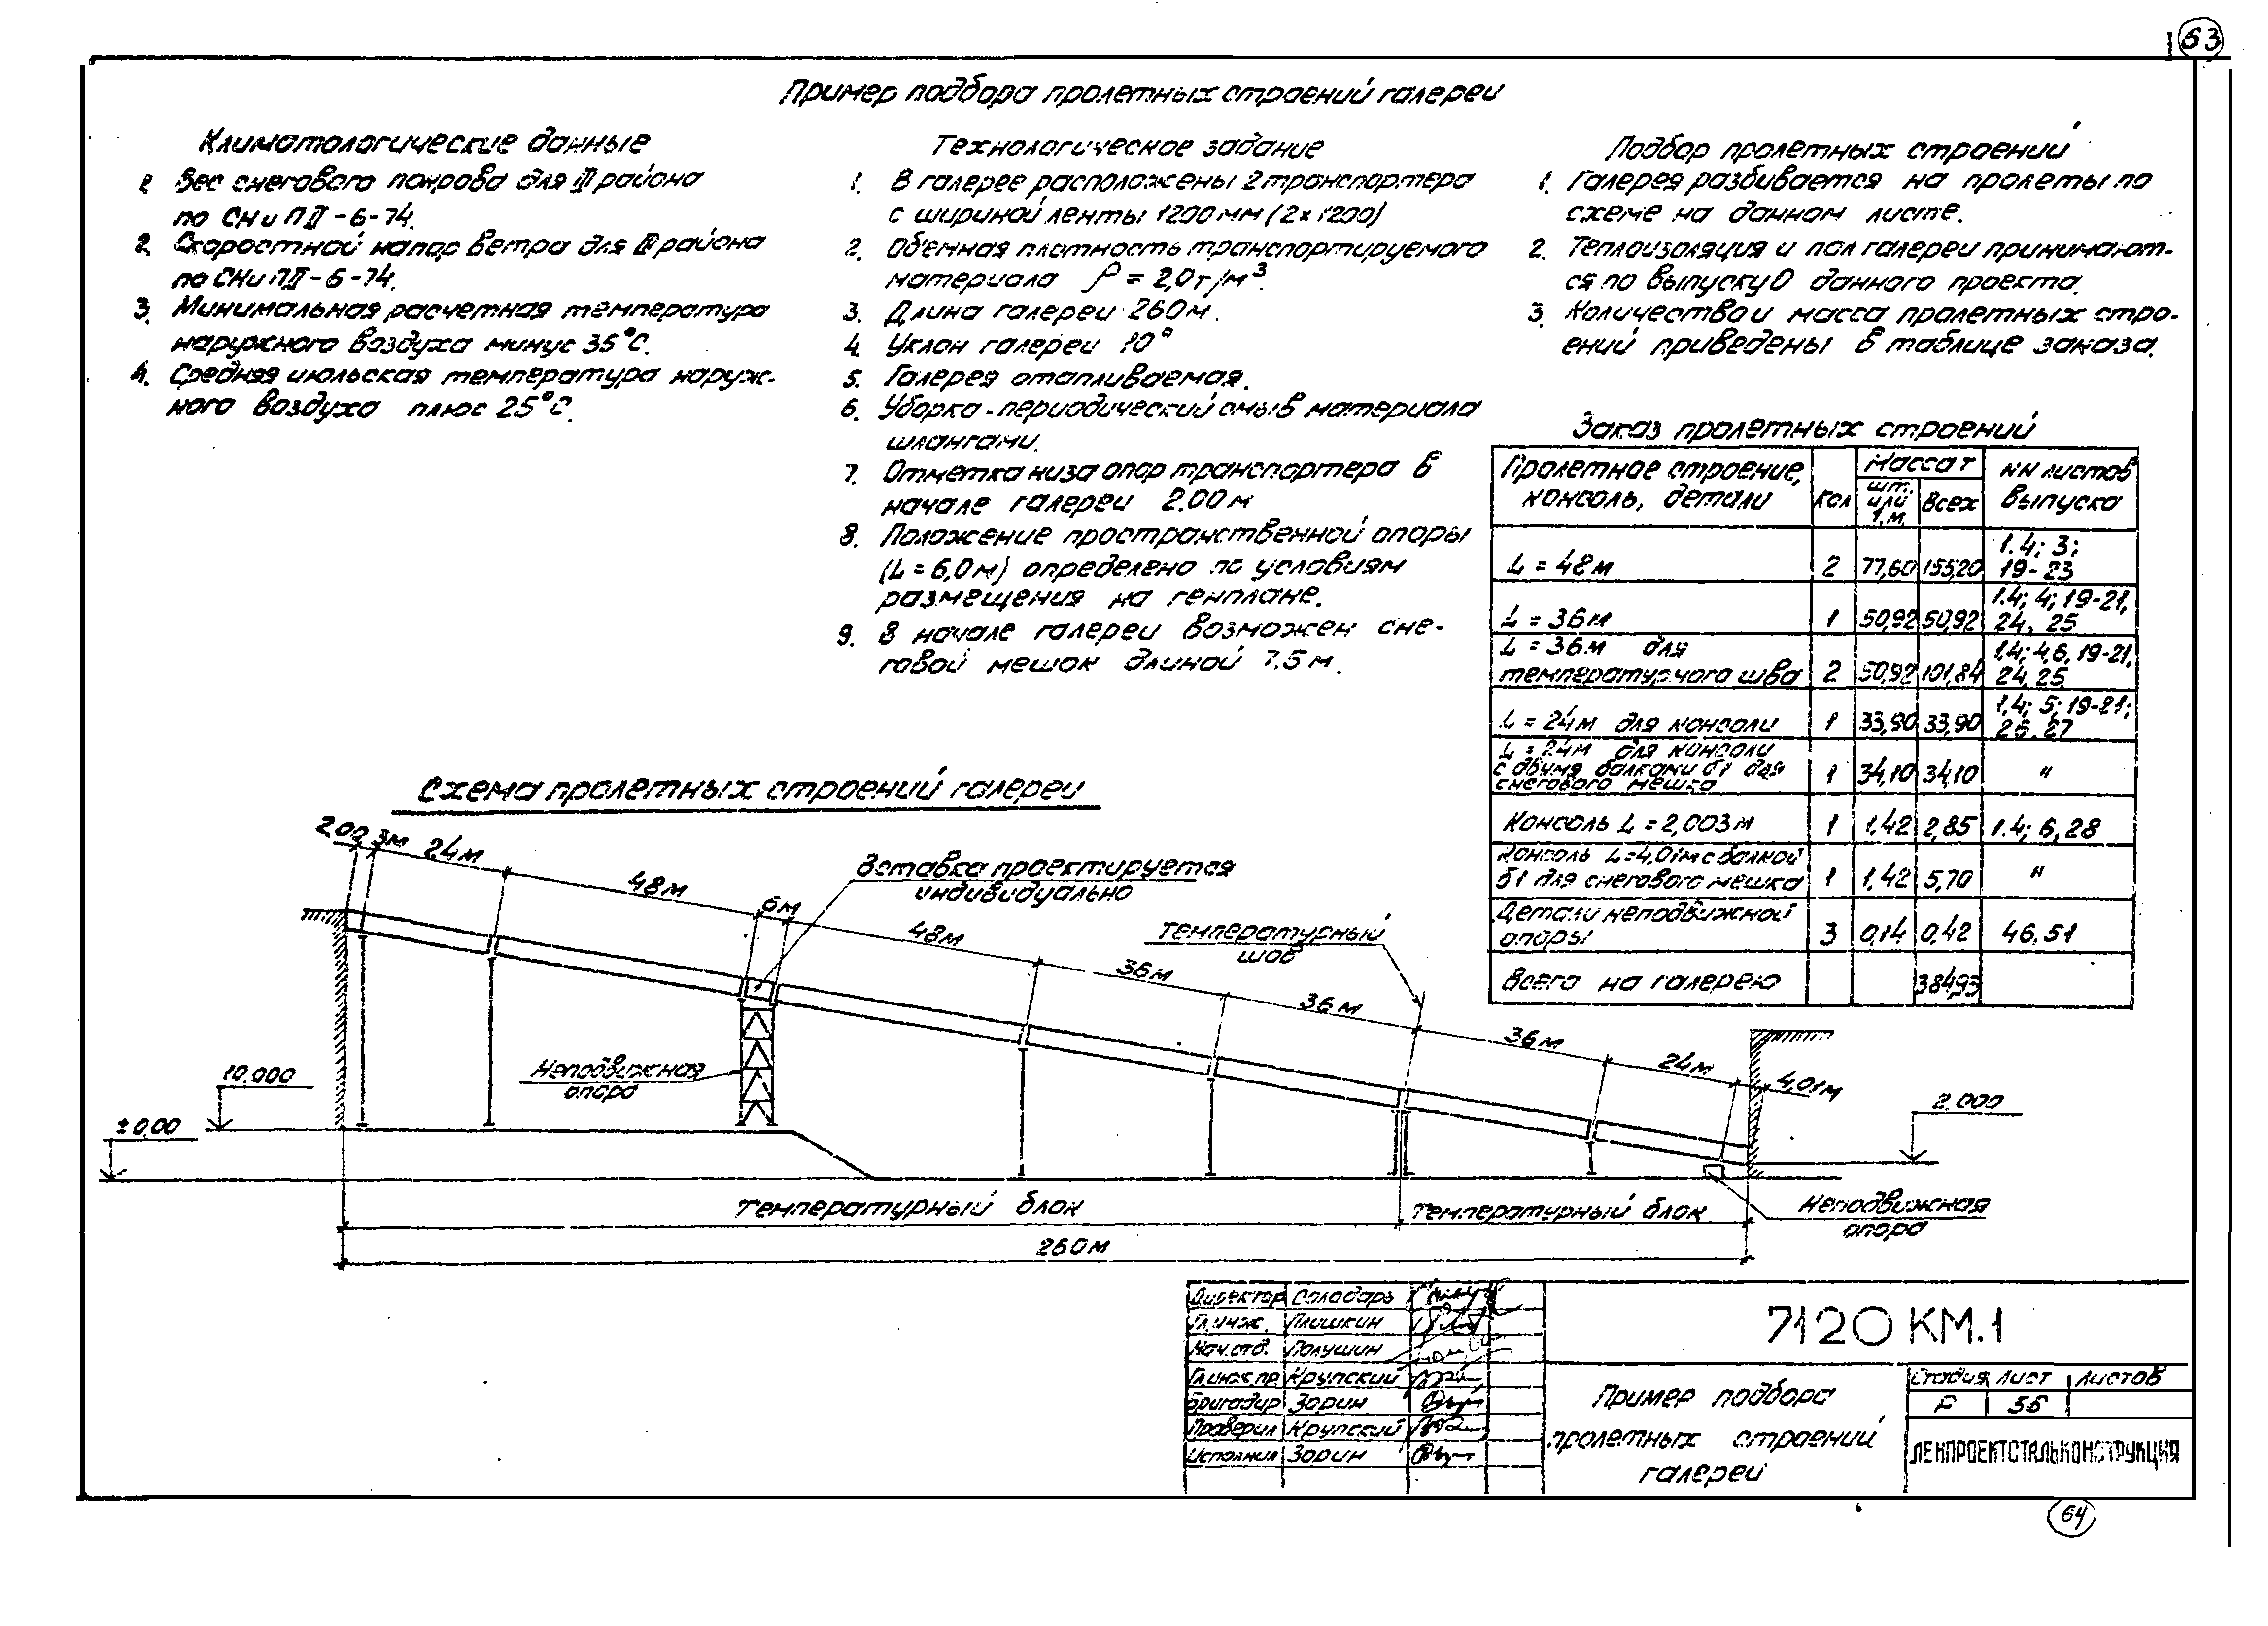 63
Пример подбора пролетных строений галереи
Климатологические данные
1. Вес снегового покрова для III района
по СНиП II-6-74.
2. Скоростной напор ветра для III района
по СНиП II-6-74.
3. Минимальная расчетная температура
наружного воздуха минус 35°С.
4. Средняя июльская температура наруж-
ного воздуха плюс 25°С.
Технологическое задание
1. В галерее расположены 2 транспортера
с шириной ленты 1200мм (2х1200)
2. Обемная плотность транспортируемого
материала ρ = 2,0т/м³.
3. Длина галереи 260м.
4. Уклон галереи 10°
5. Галерея отапливаемая.
6. Уборка - периодический смыв материала
шлангами.
7. Отметка низа опор транспортера в
начале галереи 2.00м
8. Положение пространственной опоры
(L = 6,0м) определено по условиям
размещения на генплане.
9. В начале галереи возможен сне-
говой мешок длиной 7,5м.
Подбор пролетных строений
1. Галерея разбивается на пролеты по
схеме на данном листе.
2. Теплоизоляция и пол галереи принимают-
ся по выпуску 0 данного проекта.
3. Количество и масса пролетных стро-
ений приведены в таблице заказа.
Заказ пролетных строений
Пролетное строение, консоль, детали | Кол | Масса т | шт. или 1.м. | Всех | NN листов выпуска
L = 48м 2 77,60 155,20 1.4; 3; 19-23
L = 36м 1 50,92 50,92 1.4; 4; 19-21, 24, 25
L = 36м для температурного шва 2 50,92 101,84 1.4; 4,6, 19-21, 24, 25
L = 24м для консоли 1 33,90 33,90 1,4; 5; 19-21; 26, 27
L = 24м для консоли с двумя балками б1 для снегового мешка 1 34,10 34,10 "
Консоль L = 2,003м 1 1,42 2,85 1.4; 6, 28
Консоль L=4,01м с балкой б1 для снегового мешка 1 1,42 5,70 "
Детали неподвижной опоры 3 0,14 0,42 46, 51
Всего на галерею 384,93
Схема пролетных строений галереи
2,003м
24м
48м
6м
48м
36м
36м
36м
24м
4,01м
Вставка проектируется
индивидуально
Температурный
шов
Неподвижная
опора
10.000
±0,00
2.000
Температурный блок
Температурный блок
Неподвижная
опора
260м
Директор Солодарь
Гл.инж. Плишкин
Нач.отд. Полушин
Гл.инж.пр. Крупский
Бригадир Зорин
Проверил Крупский
Исполнил Зорин
7120 КМ.1
Пример подбора
пролетных строений
галереи
Стадия Лист Листов
Р 56
ЛЕНПРОЕКТСТАЛЬКОНСТРУКЦИЯ
64